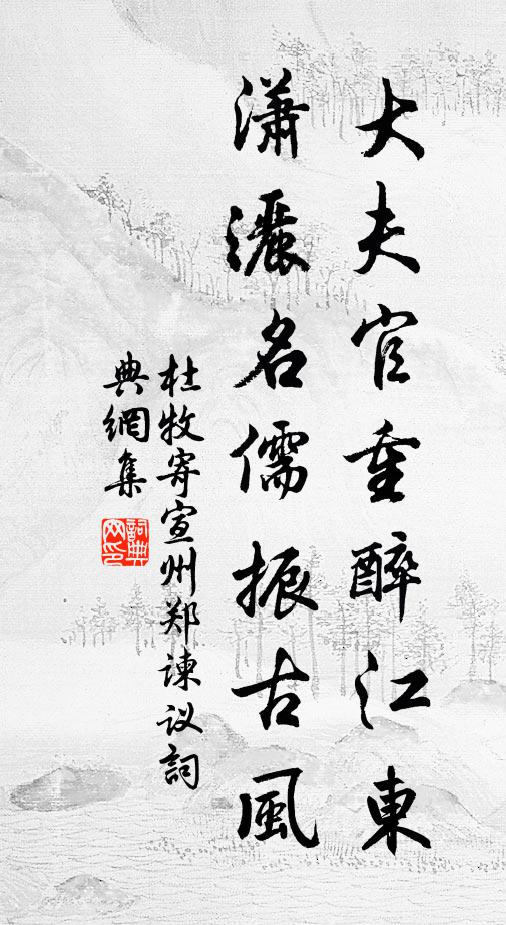 大夫官重醉江東
瀟灑名儒振古風
杜牧寄宣州郑谏议詞
典網集
詞典网印